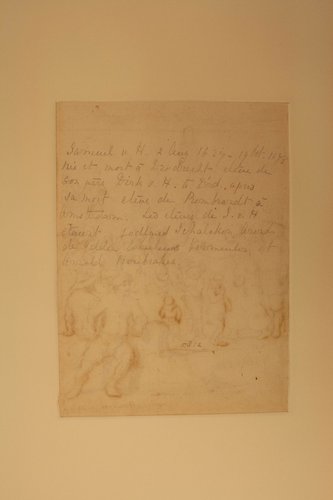 Samuel v. H. 2 Aug 1627 - 19 Oct. 1678
né et mort à Dordrecht élève de
son père Dirk v. H. à Dord. apres
sa mort elève de Rembrandt à
Amsterdam. Les élèves de S. v H
étaient Godfried Schalcken Arent
de Gelder
Arnold Houbraken.